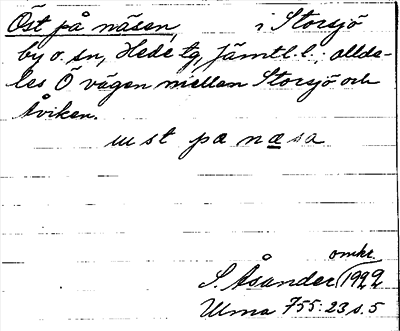 Öst på näsen, i Storsjö
by o. sn, Hede tg, Jämtl. l.; allde-
les Ö vägen mellan Storsjö och
Åviken.
ust pæ næsa
omkr.
S. Åsander 1922
Ulma 755:23 s. 5